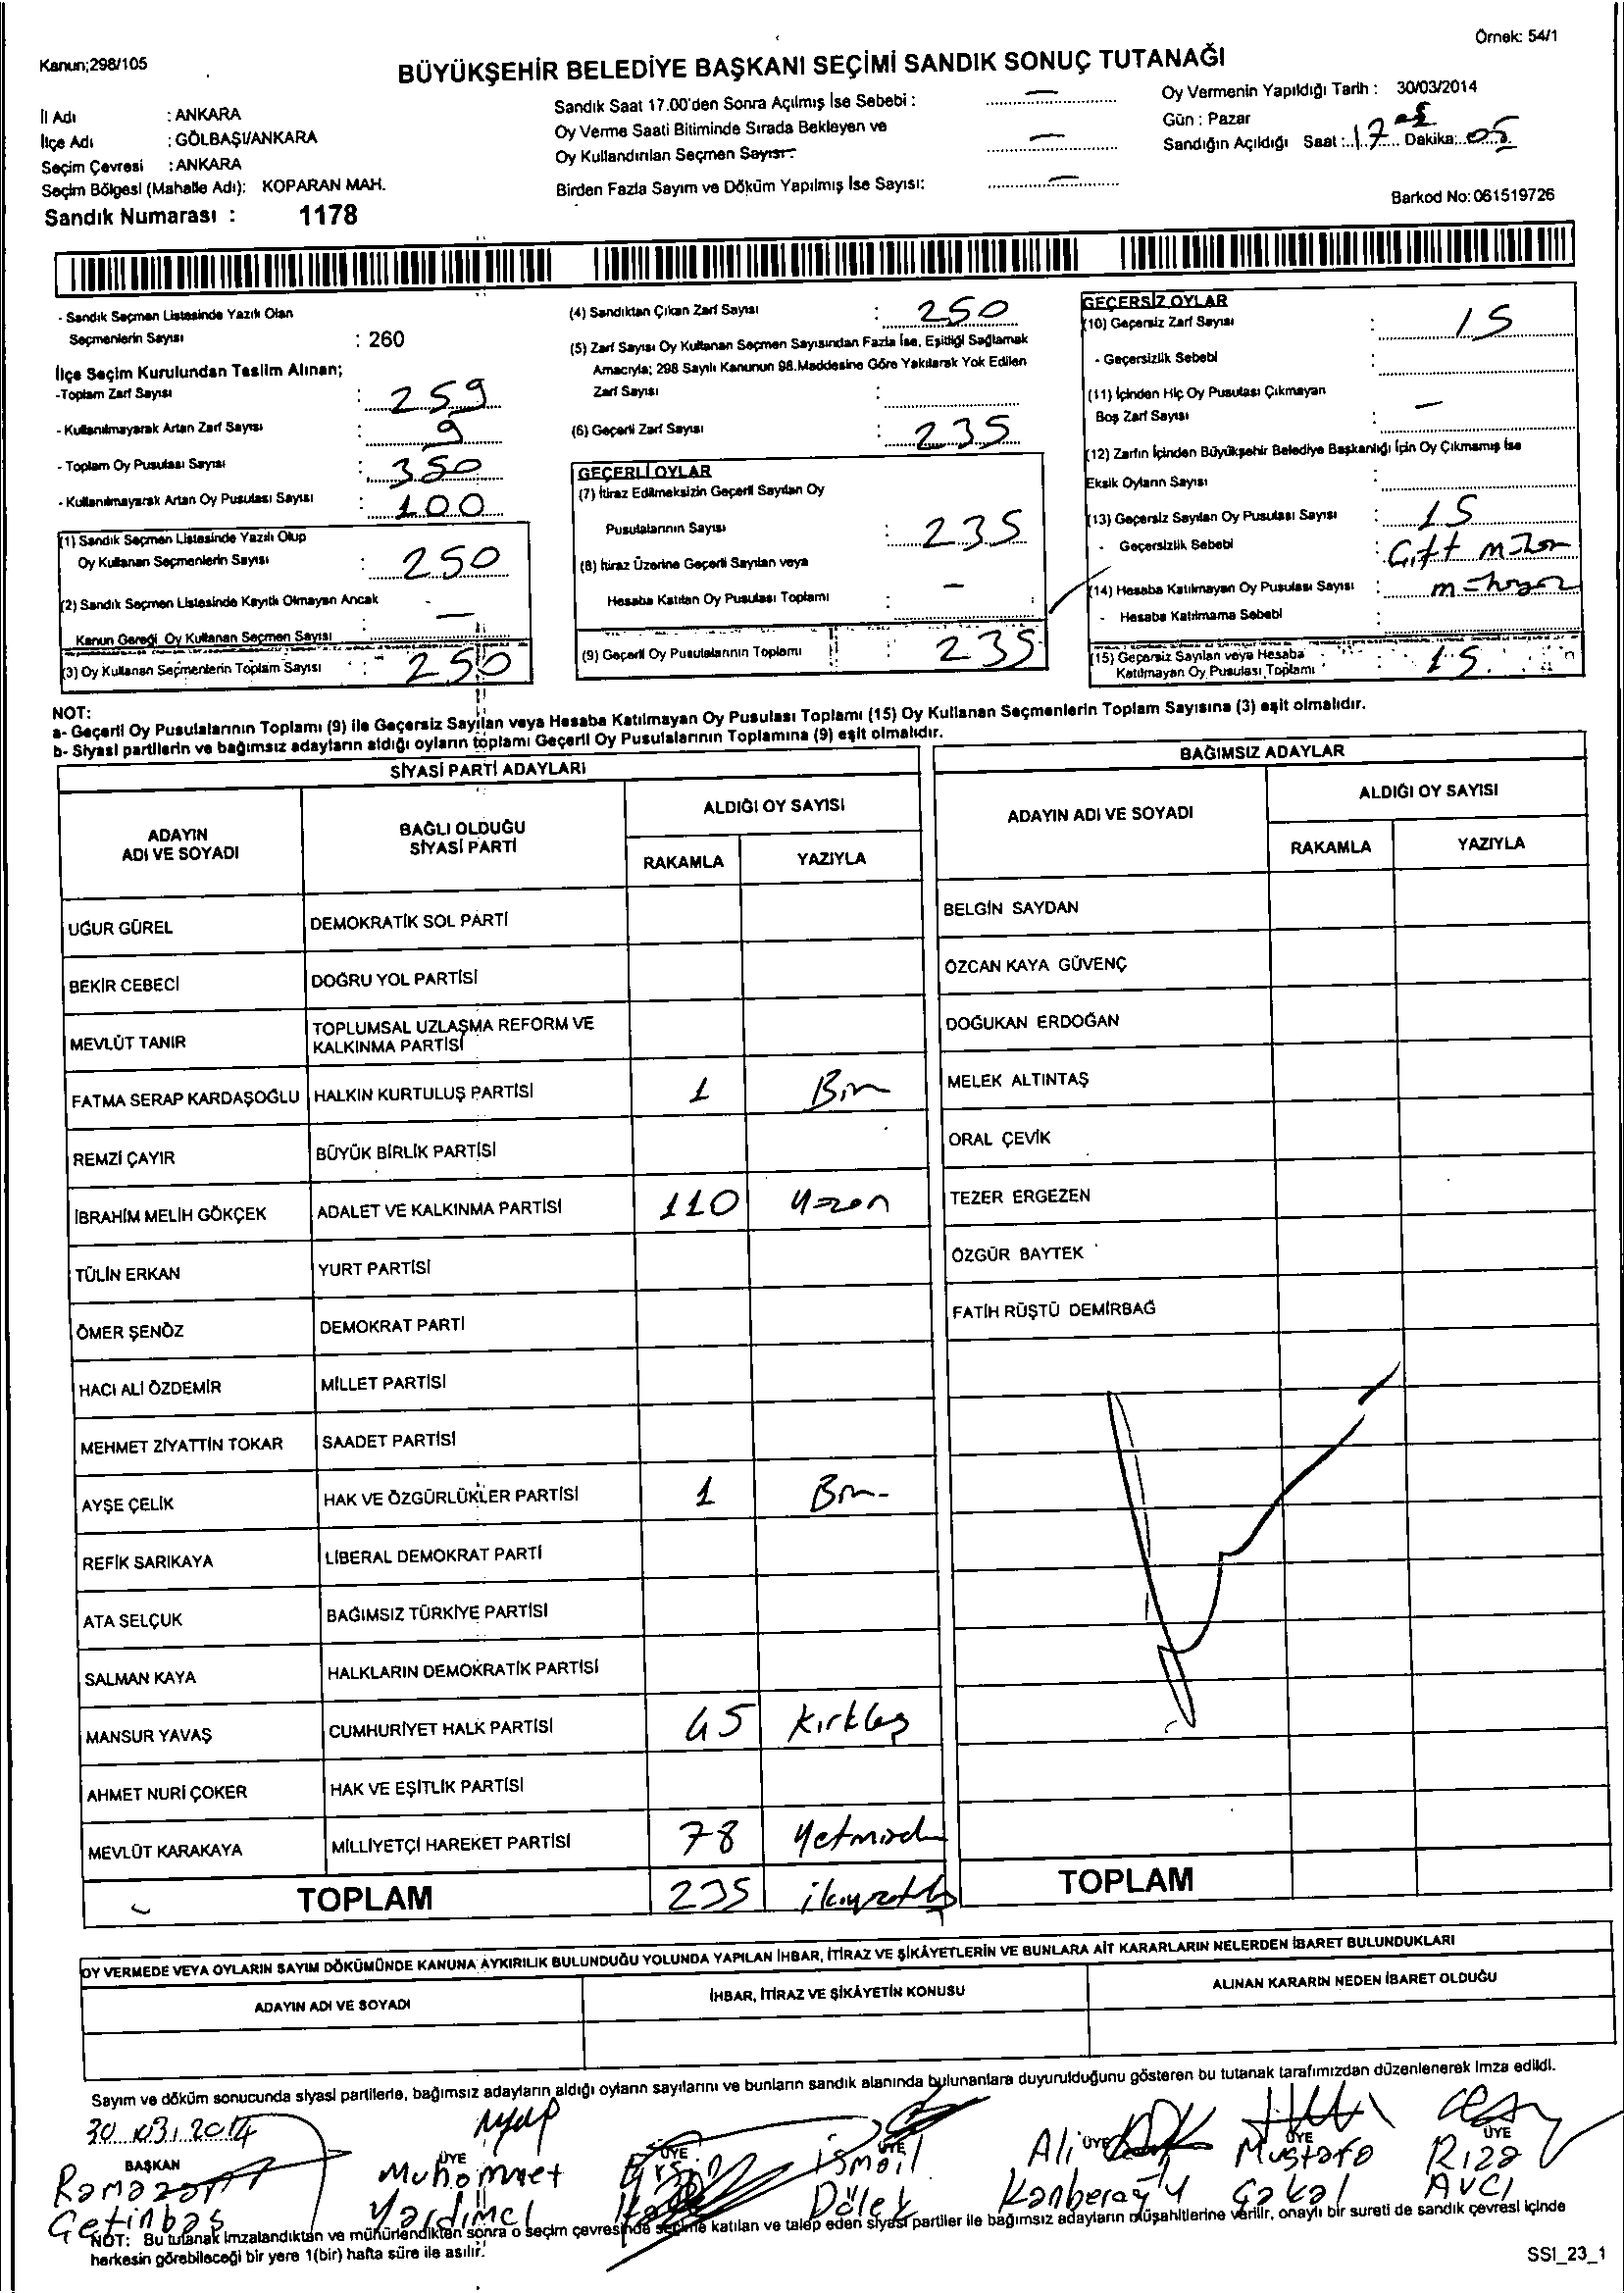 Örnek: 54/1
Kanun;298/105
BÜYÜKŞEHİR BELEDİYE BAŞKANI SEÇİMİ SANDIK SONUÇ TUTANAĞI
İl Adı : ANKARA
İlçe Adı : GÖLBAŞI/ANKARA
Seçim Çevresi : ANKARA
Seçim Bölgesi (Mahalle Adı): KOPARAN MAH.
Sandık Numarası : 1178
Sandık Saat 17.00'den Sonra Açılmış İse Sebebi : —
Oy Verme Saati Bitiminde Sırada Bekleyen ve
Oy Kullandırılan Seçmen Sayısı: —
Birden Fazla Sayım ve Döküm Yapılmış İse Sayısı: —
Oy Vermenin Yapıldığı Tarih : 30/03/2014
Gün : Pazar
Sandığın Açıldığı Saat : 17 Dakika: 05
Barkod No: 061519726
- Sandık Seçmen Listesinde Yazılı Olan
Seçmenlerin Sayısı : 260
İlçe Seçim Kurulundan Teslim Alınan;
-Toplam Zarf Sayısı : 259
- Kullanılmayarak Artan Zarf Sayısı : 9
- Toplam Oy Pusulası Sayısı : 350
- Kullanılmayarak Artan Oy Pusulası Sayısı : 100
(1) Sandık Seçmen Listesinde Yazılı Olup
Oy Kullanan Seçmenlerin Sayısı : 250
(2) Sandık Seçmen Listesinde Kayıtlı Olmayan Ancak
Kanun Gereği Oy Kullanan Seçmen Sayısı —
(3) Oy Kullanan Seçmenlerin Toplam Sayısı : 250
(4) Sandıktan Çıkan Zarf Sayısı : 250
(5) Zarf Sayısı Oy Kullanan Seçmen Sayısından Fazla İse, Eşitliği Sağlamak
Amacıyla; 298 Sayılı Kanunun 98.Maddesine Göre Yakılarak Yok Edilen
Zarf Sayısı :
(6) Geçerli Zarf Sayısı : 235
GEÇERLİ OYLAR
(7) İtiraz Edilmeksizin Geçerli Sayılan Oy
Pusulalarının Sayısı : 235
(8) İtiraz Üzerine Geçerli Sayılan veya
Hesaba Katılan Oy Pusulası Toplamı : —
(9) Geçerli Oy Pusulalarının Toplamı : 235
GEÇERSİZ OYLAR
(10) Geçersiz Zarf Sayısı : 15
- Geçersizlik Sebebi :
(11) İçinden Hiç Oy Pusulası Çıkmayan
Boş Zarf Sayısı : —
(12) Zarfın İçinden Büyükşehir Belediye Başkanlığı İçin Oy Çıkmamış İse
Eksik Oyların Sayısı :
(13) Geçersiz Sayılan Oy Pusulası Sayısı : 15
- Geçersizlik Sebebi : Çift
(14) Hesaba Katılmayan Oy Pusulası Sayısı :
- Hesaba Katılmama Sebebi
(15) Geçersiz Sayılan veya Hesaba
Katılmayan Oy Pusulası Toplamı : 15
NOT:
a- Geçerli Oy Pusulalarının Toplamı (9) ile Geçersiz Sayılan veya Hesaba Katılmayan Oy Pusulası Toplamı (15) Oy Kullanan Seçmenlerin Toplam Sayısına (3) eşit olmalıdır.
b- Siyasi partilerin ve bağımsız adayların aldığı oyların toplamı Geçerli Oy Pusulalarının Toplamına (9) eşit olmalıdır.
SİYASİ PARTİ ADAYLARI
ADAYIN ADI VE SOYADI
BAĞLI OLDUĞU SİYASİ PARTİ
ALDIĞI OY SAYISI
RAKAMLA YAZIYLA
UĞUR GÜREL DEMOKRATİK SOL PARTİ
BEKİR CEBECİ DOĞRU YOL PARTİSİ
MEVLÜT TANIR TOPLUMSAL UZLAŞMA REFORM VE KALKINMA PARTİSİ
FATMA SERAP KARDAŞOĞLU HALKIN KURTULUŞ PARTİSİ 1 Bir
REMZİ ÇAYIR BÜYÜK BİRLİK PARTİSİ
İBRAHİM MELİH GÖKÇEK ADALET VE KALKINMA PARTİSİ 110 yüzon
TÜLİN ERKAN YURT PARTİSİ
ÖMER ŞENÖZ DEMOKRAT PARTİ
HACI ALİ ÖZDEMİR MİLLET PARTİSİ
MEHMET ZİYATTİN TOKAR SAADET PARTİSİ
AYŞE ÇELİK HAK VE ÖZGÜRLÜKLER PARTİSİ 1 Bir
REFİK SARIKAYA LİBERAL DEMOKRAT PARTİ
ATA SELÇUK BAĞIMSIZ TÜRKİYE PARTİSİ
SALMAN KAYA HALKLARIN DEMOKRATİK PARTİSİ
MANSUR YAVAŞ CUMHURİYET HALK PARTİSİ 45
AHMET NURİ ÇOKER HAK VE EŞİTLİK PARTİSİ
MEVLÜT KARAKAYA MİLLİYETÇİ HAREKET PARTİSİ 78
TOPLAM 235
BAĞIMSIZ ADAYLAR
ADAYIN ADI VE SOYADI
ALDIĞI OY SAYISI
RAKAMLA YAZIYLA
BELGİN SAYDAN
ÖZCAN KAYA GÜVENÇ
DOĞUKAN ERDOĞAN
MELEK ALTINTAŞ
ORAL ÇEVİK
TEZER ERGEZEN
ÖZGÜR BAYTEK
FATİH RÜŞTÜ DEMİRBAĞ
TOPLAM
OY VERMEDE VEYA OYLARIN SAYIM DÖKÜMÜNDE KANUNA AYKIRILIK BULUNDUĞU YOLUNDA YAPILAN İHBAR, İTİRAZ VE ŞİKÂYETLERİN VE BUNLARA AİT KARARLARIN NELERDEN İBARET BULUNDUKLARI
ADAYIN ADI VE SOYADI
İHBAR, İTİRAZ VE ŞİKÂYETİN KONUSU
ALINAN KARARIN NEDEN İBARET OLDUĞU
Sayım ve döküm sonucunda siyasi partilerle, bağımsız adayların aldığı oyların sayılarını ve bunların sandık alanında bulunanlara duyurulduğunu gösteren bu tutanak tarafımızdan düzenlenerek imza edildi.
30.03.2014
BAŞKAN ÜYE ÜYE ÜYE ÜYE ÜYE ÜYE
Ramazan Muhammet Ersin İsmail Ali Mustafa Rıza
Çetinbaş Yardımcı Dölek Kanberoğlu Çakal AVCI
NOT: Bu tutanak imzalandıktan ve mühürlendikten sonra o seçim çevresinde seçime katılan ve talep eden siyasi partiler ile bağımsız adayların müşahitlerine verilir, onaylı bir sureti de sandık çevresi içinde
herkesin görebileceği bir yere 1(bir) hafta süre ile asılır.
SSI_23_1